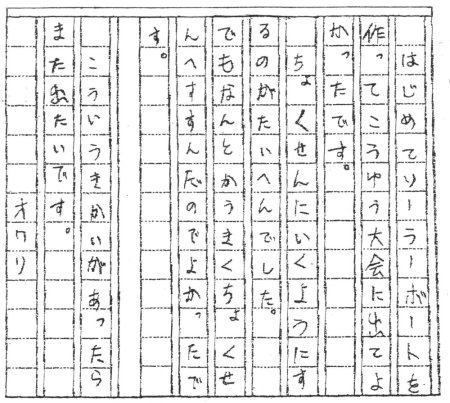 はじめてソーラーボートを
作ってこうゆう大会に出てよ
かったです。
ちょくせんにいくようにす
るのがたいへんでした。
でもなんとかうまくちょくせ
んへすすんだのでよかったで
す。
こういうきかいがあったら
また出たいです。
オワリ